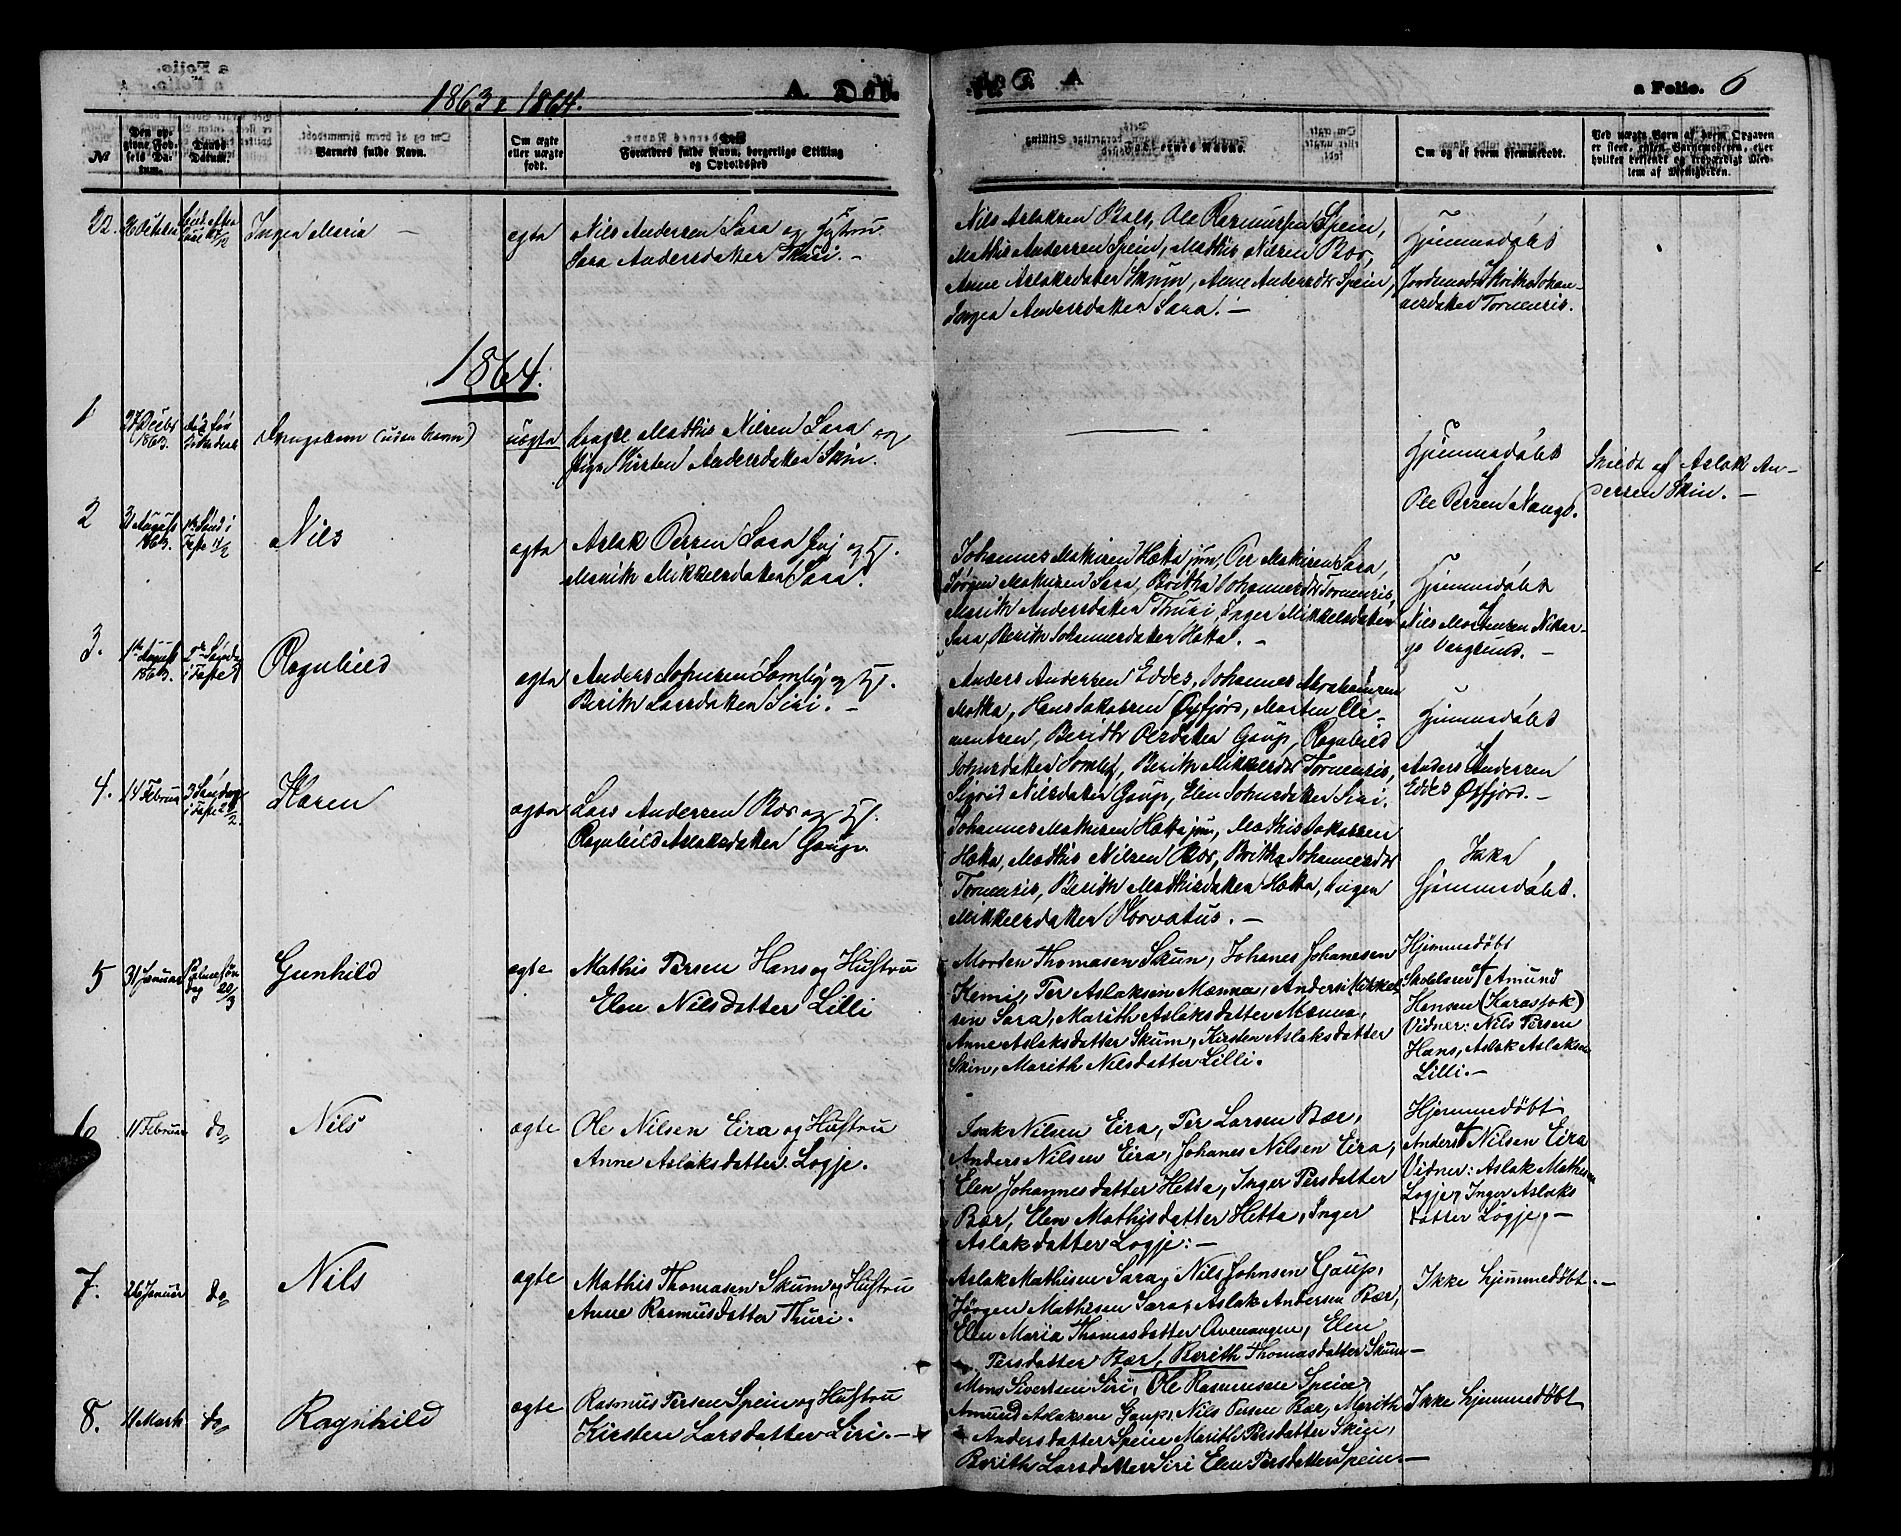 1863 & 1864.
A. Døb
a Folio. 6
№
Den opgivne Fødsels Datum.
Daabs Datum.
Barnets fulde Navn.
Om ægte eller uægte født.
Forældres fulde Navn, borgerlige Stilling og Opholdssted
Faddernes Navne.
Om og af hvem hjemmedøbt.
Ved uægte Børn af hvem Opgaven er skeet, enten Barnemoderen, eller hvilket bekjendt og troværdigt Medlem af Menigheden.
22.
Inger Maria
ægte
Nils Andersen Sara og Hustru
Sara Andersdatter Skori. –
Nils Aslaksen Bals, Ole Rasmusen Spein,
Mathis Andersen Spein, Mathis Nilsen Bær,
Anne Aslaksdatter Skum, Anne Andersdtr Spein,
Inger Andersdatter Sara. –
Hjemmedøbt
af
Jordemoder Brita Johan-
nesdatter Tornensis.
1864.
1
27 Decbr 1863.
Drengebarn (uden Navn)
uægte
Mathis Nilsen Sara og
Pige Kirsten Andersdatter Skin.
Hjemmedøbt
af
Ole Persen Nango.
Anmeldt af Aslak An-
dersen Skin. –
2
31 August 1863.
Nils
ægte
Aslak Persen Sara og H.
Marith Mikkelsdatter Sara.
Johannes Mathisen Hætta jun, Per Mathisen Sara,
Jørgen Mathisen Sara, Britha Johannesdtr Tornensis,
Marith Andersdatter Thuri, Inger Mikkelsdatter
Sara, Berith Johannesdatter Hætta. –
Hjemmedøbt
af
Nils Mortensen Nikar-
go Vargsund. –
3.
1ste August 1863.
Ragnhild
ægte
Anders Johnsen Somby og H.
Berith Larsdatter Siri. –
Anders Andersen Eddes, Johannes Abrahamsen
Motka, Hans Jakobsen Øxfjord, Morten Cle-
mentsen, Berith Persdatter Gaup, Ragnhild
Johnsdatter Somby, Berith Mikkelsdtr Tornensis,
Sigrid Nilsdatter Gaup, Elen Johnsdatter Siri.
Hjemmedøbt
af
Anders Andersen
Eddes Øxfjord. –
4.
14 Februar
3 Søndag i Faste 28/2.
Karen
ægte
Lars Andersen Bær og H.
Ragnhild Aslaksdatter Gaup.
Johannes Mathisen Hætta jun, Mathis Jakobsen
Hætta, Mathis Nilsen Bær, Britha Johannesdtr
Tornensis, Berith Mathisdatter Hætta, Inger
Mikkelsdatter Korvatus. –
Ikke
hjemmedøbt.
5
31 Januar
Palmesøn
dag 20/3
Gunhild
ægte
Mathis Persen Hans og Hustru
Elen Nilsdatter Lilli
Morden Thomasen Skum, Johanes Johanesen
Kemi, Per Aslaksen Mænna, Anders Mikkel-
sen Sara, Marith Aslaksdatter Mænna,
Anne Aslaksdatter Skum, Kirsten Aslaksdatter
Skin, Marith Nilsdatter Lilli.
Hjemmedøbt
af
Skolelærer Amund
Hansen (Karasjok)
Vidner: Nils Persen
Hans, Aslak Aslaksen
Lilli. –
6
11 Februar
do
Nils
ægte
Ole Nilsen Eira og Hustru
Anne Aslaksdatter Logje.
Isak Nilsen Eira, Per Larsen Bær,
Anders Nilsen Eira, Johanes Nilsen Eira,
Elen Johannesdatter Hetta, Inger Persdatter
Bær, Elen Mathisdatter Hetta, Inger
Aslaksdatter Logje. –
Hjemmedøbt
af
Anders Nilsen Eira
Vidner: Aslak Mathisen
Logje, Inger Aslaks
datter Logje. –
7.
26 Januar
do
Nils
ægte
Mathis Thomasen Skum og Hustru
Anne Rasmusdatter Thuri.
Aslak Mathisen Sara, Nils Johnsen Gaup,
Jørgen Mathisen Sara, Aslak Andersen Bær,
Elen Maria Thomasdatter Avevangen, Elen
Persdatter Bær, Berith Thomasdatter Skum –
Ikke hjemmedøbt. –
8.
11 Marts
do
Ragnhild
ægte
Rasmus Persen Spein og Hustru
Kirsten Larsdatter Siri. –
Mons Sivertsen Siri, Ole Rasmusen Spein,
Amund Aslaksen Gaup, Nils Persen Bær, Marith
Andersdatter Spein, Marith Persdatter Skin,
Berith Larsdatter Siri, Elen Persdatter Spein. –
Ikke hjemmedøbt